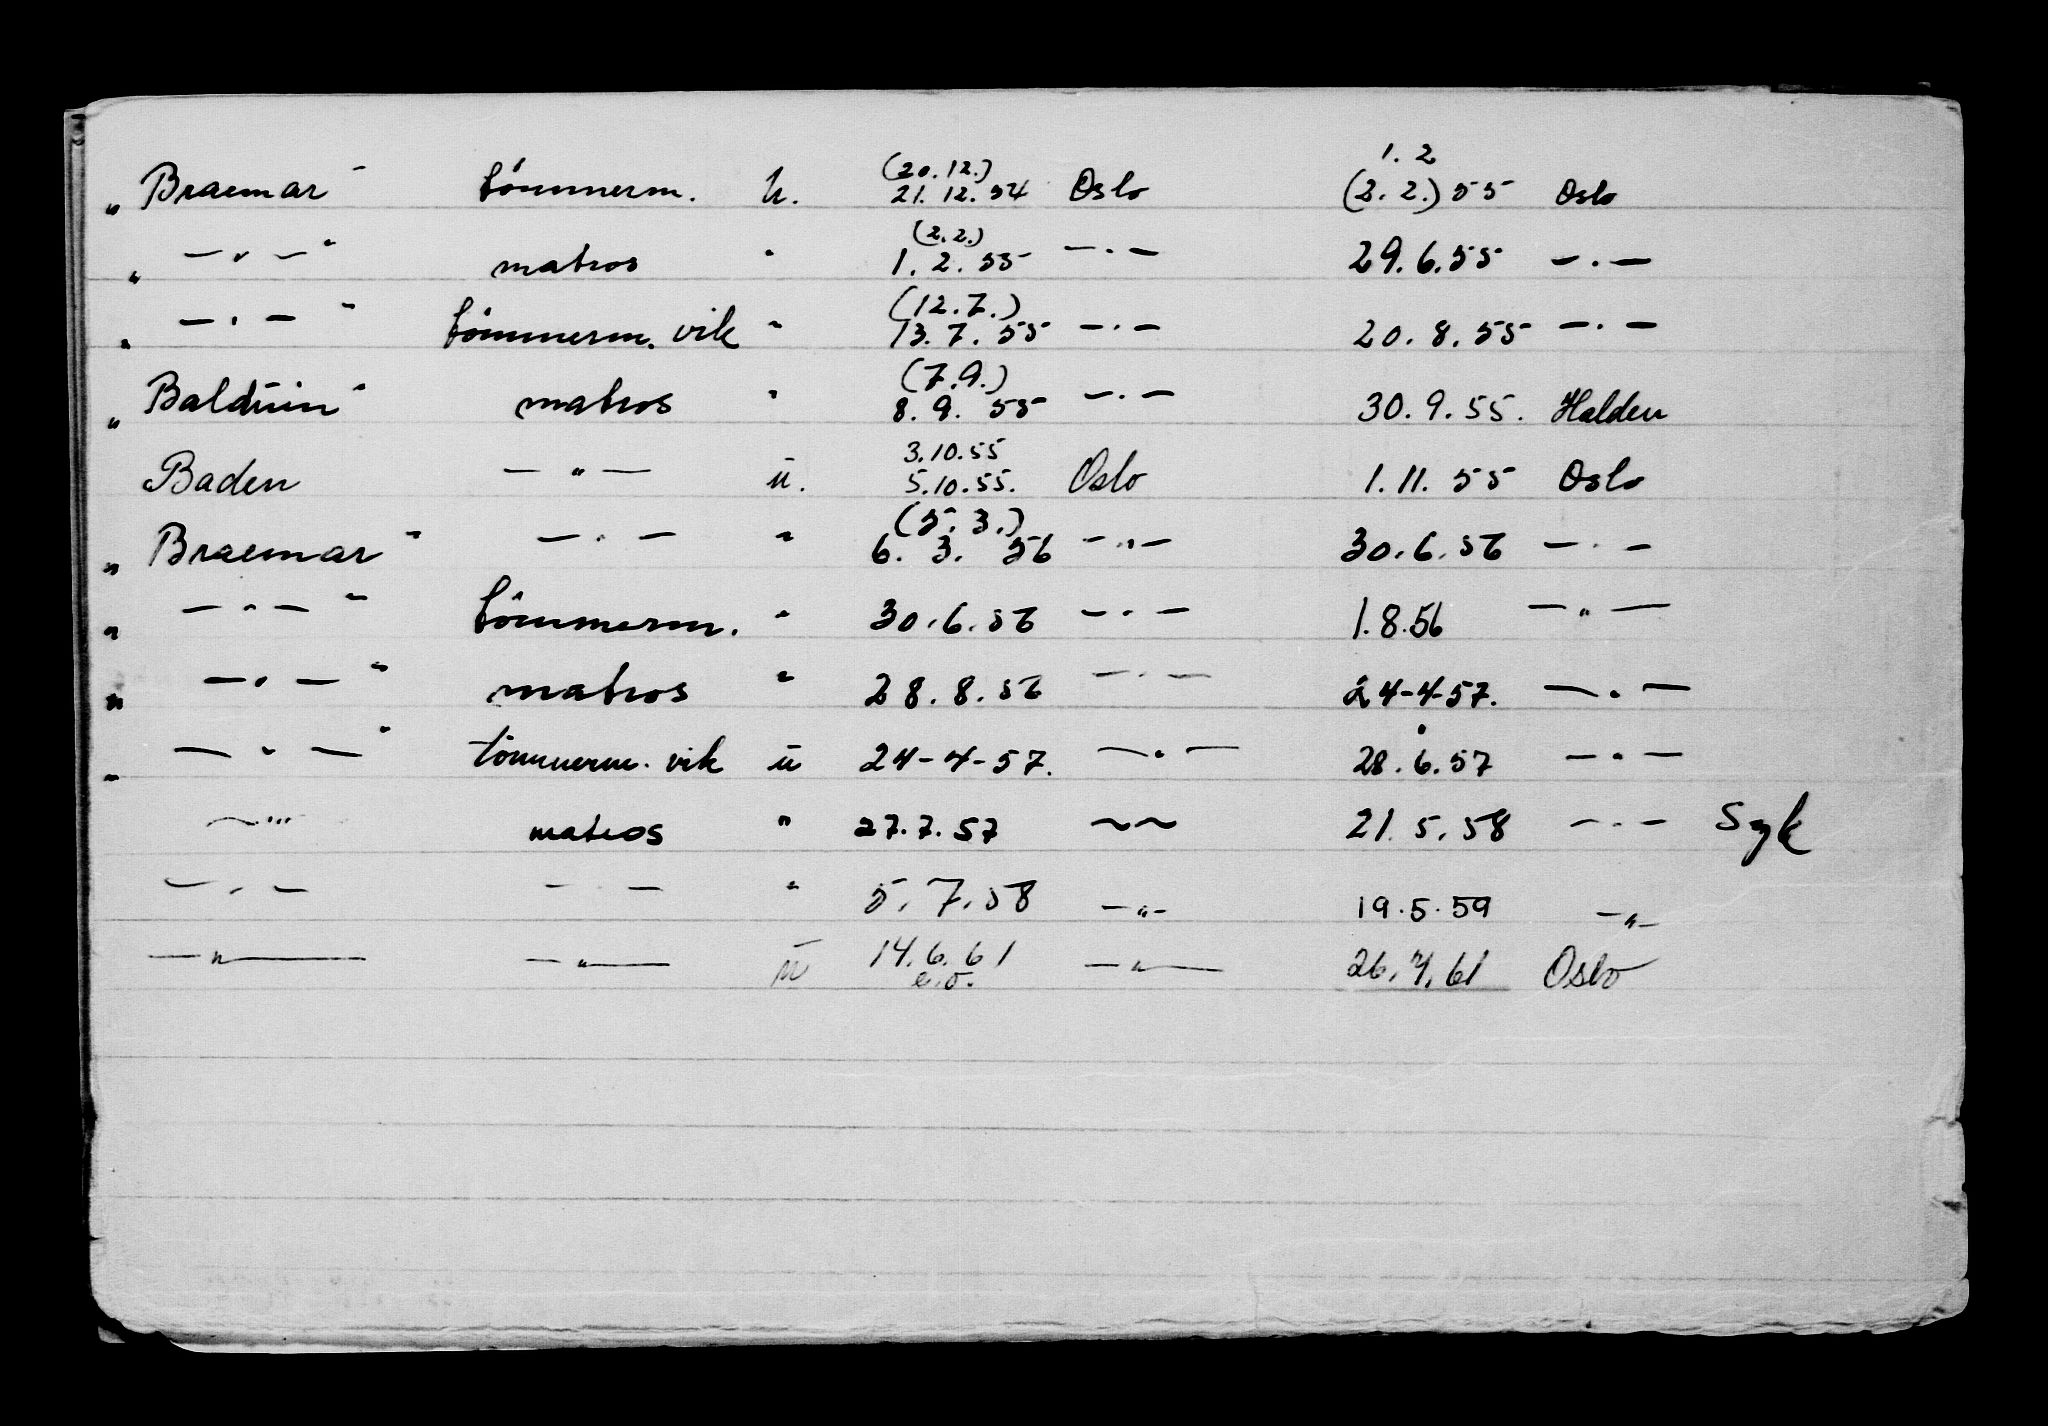 „Braemar" tömmerm. u. (20.12.) 21.12.54 Oslo 1.2 (2.2.) 55 Oslo
„ — " — " matros " (2.2.) 1.2.55 — " — 29.6.55 — " —
„ — " — " tömmerm. vik " (12.7.) 13.7.55 — " — 20.8.55 — " —
„Balduin" matros " (7.9.) 8.9.55 — " — 30.9.55. Halden
Baden — " — u. 3.10.55 5.10.55. Oslo 1.11.55 Oslo
„Braemar" — " — " (5.3.) 6.3.56 — " — 30.6.56 — " —
„ — " — " tömmerm. " 30.6.56 — " — 1.8.56 — " —
„ — " — " matros " 28.8.56 — " — 24-4-57. — " —
„ — " — " tömmerm. vik u 24-4-57. — " — 28.6.57 — " —
— " matros " 27.7.57 ~~ 21.5.58 — " — Syk
— " — — " — " 5.7.58 — " — 19.5.59 — " —
— " — — " — u 14.6.61 e.o. — " — 26.7.61 Oslo